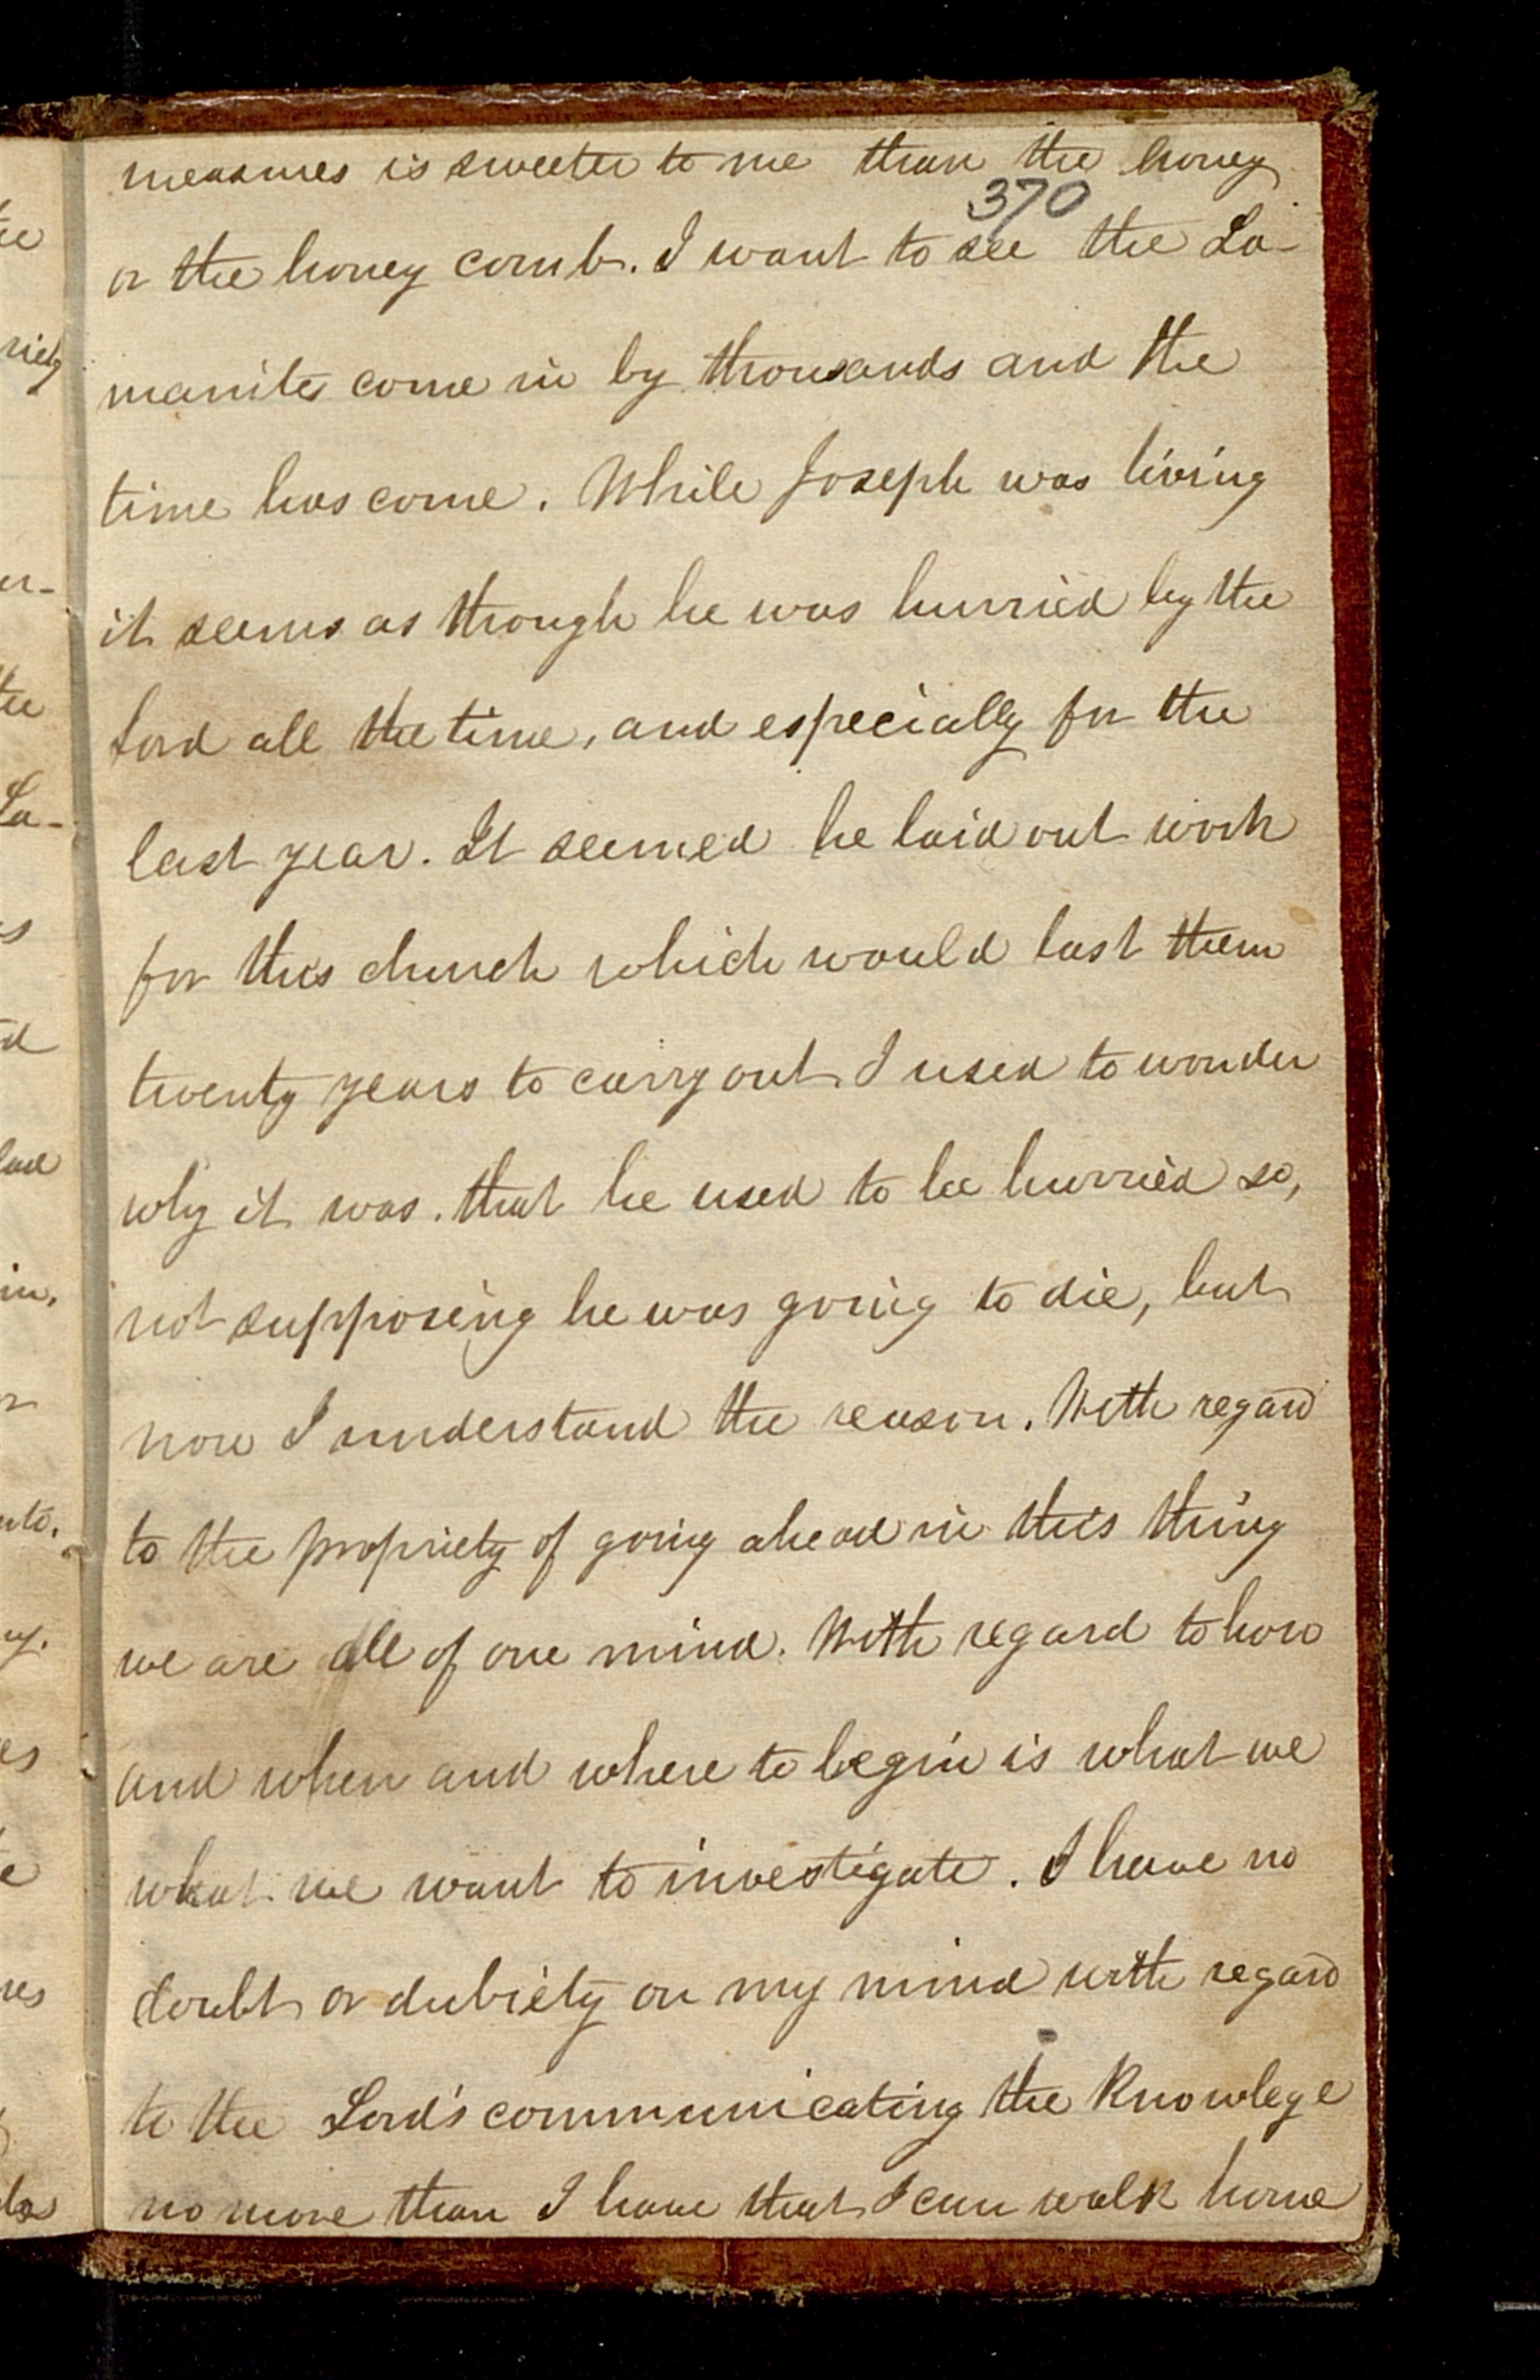 measures is sweeter to me than the honey
370
or the honey comb. I want to see the La-
manites come in by thousands and the
time has come. While Joseph was living
it seems as though he was hurried by the
Lord all the time, and especially for the
last year. It seemed he laid out work
for this church which would last them
twenty years to carry out. I used to wonder
why it was. that he used to be hurried so,
not supposing he was going to die, but
now I understand the reason. With regard
to the propriety of going ahead in this thing
we are all of one mind. With regard to how
and when and where to begin is what we
what we want to investigate. I have no
doubt or dubiety on my mind with regard
to the Lord's communicating the knowlege
no more than I have that I can walk home